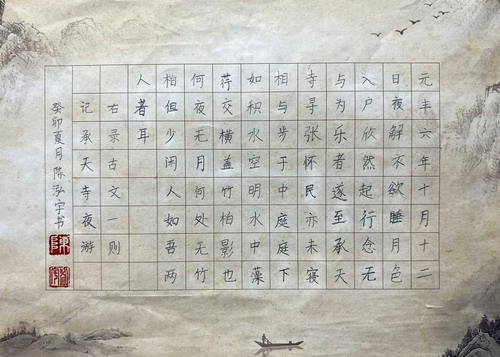 元丰六年十月十二
日夜解衣欲睡月色
入户欣然起行念无
与为乐者遂至承天
寺寻张怀民亦未寝
相与步于中庭庭下
如积水空明水中藻
荇交横盖竹柏影也
何夜无月何处无竹
柏但少闲人如吾两
人者耳
右录古文一则
记承天寺夜游
癸卯夏月陈泓宇书
陳